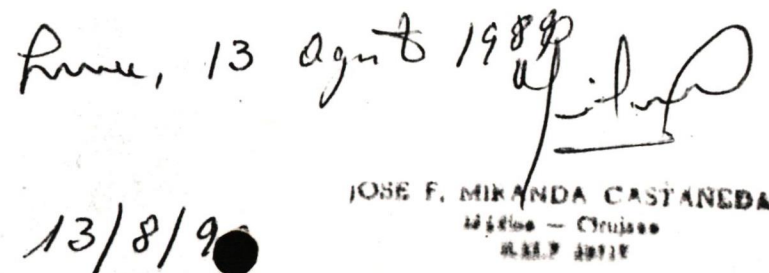 Lima, 13 agosto 1989
JOSE F. MIRANDA CASTAÑEDA
Médico — Cirujano
13/8/9